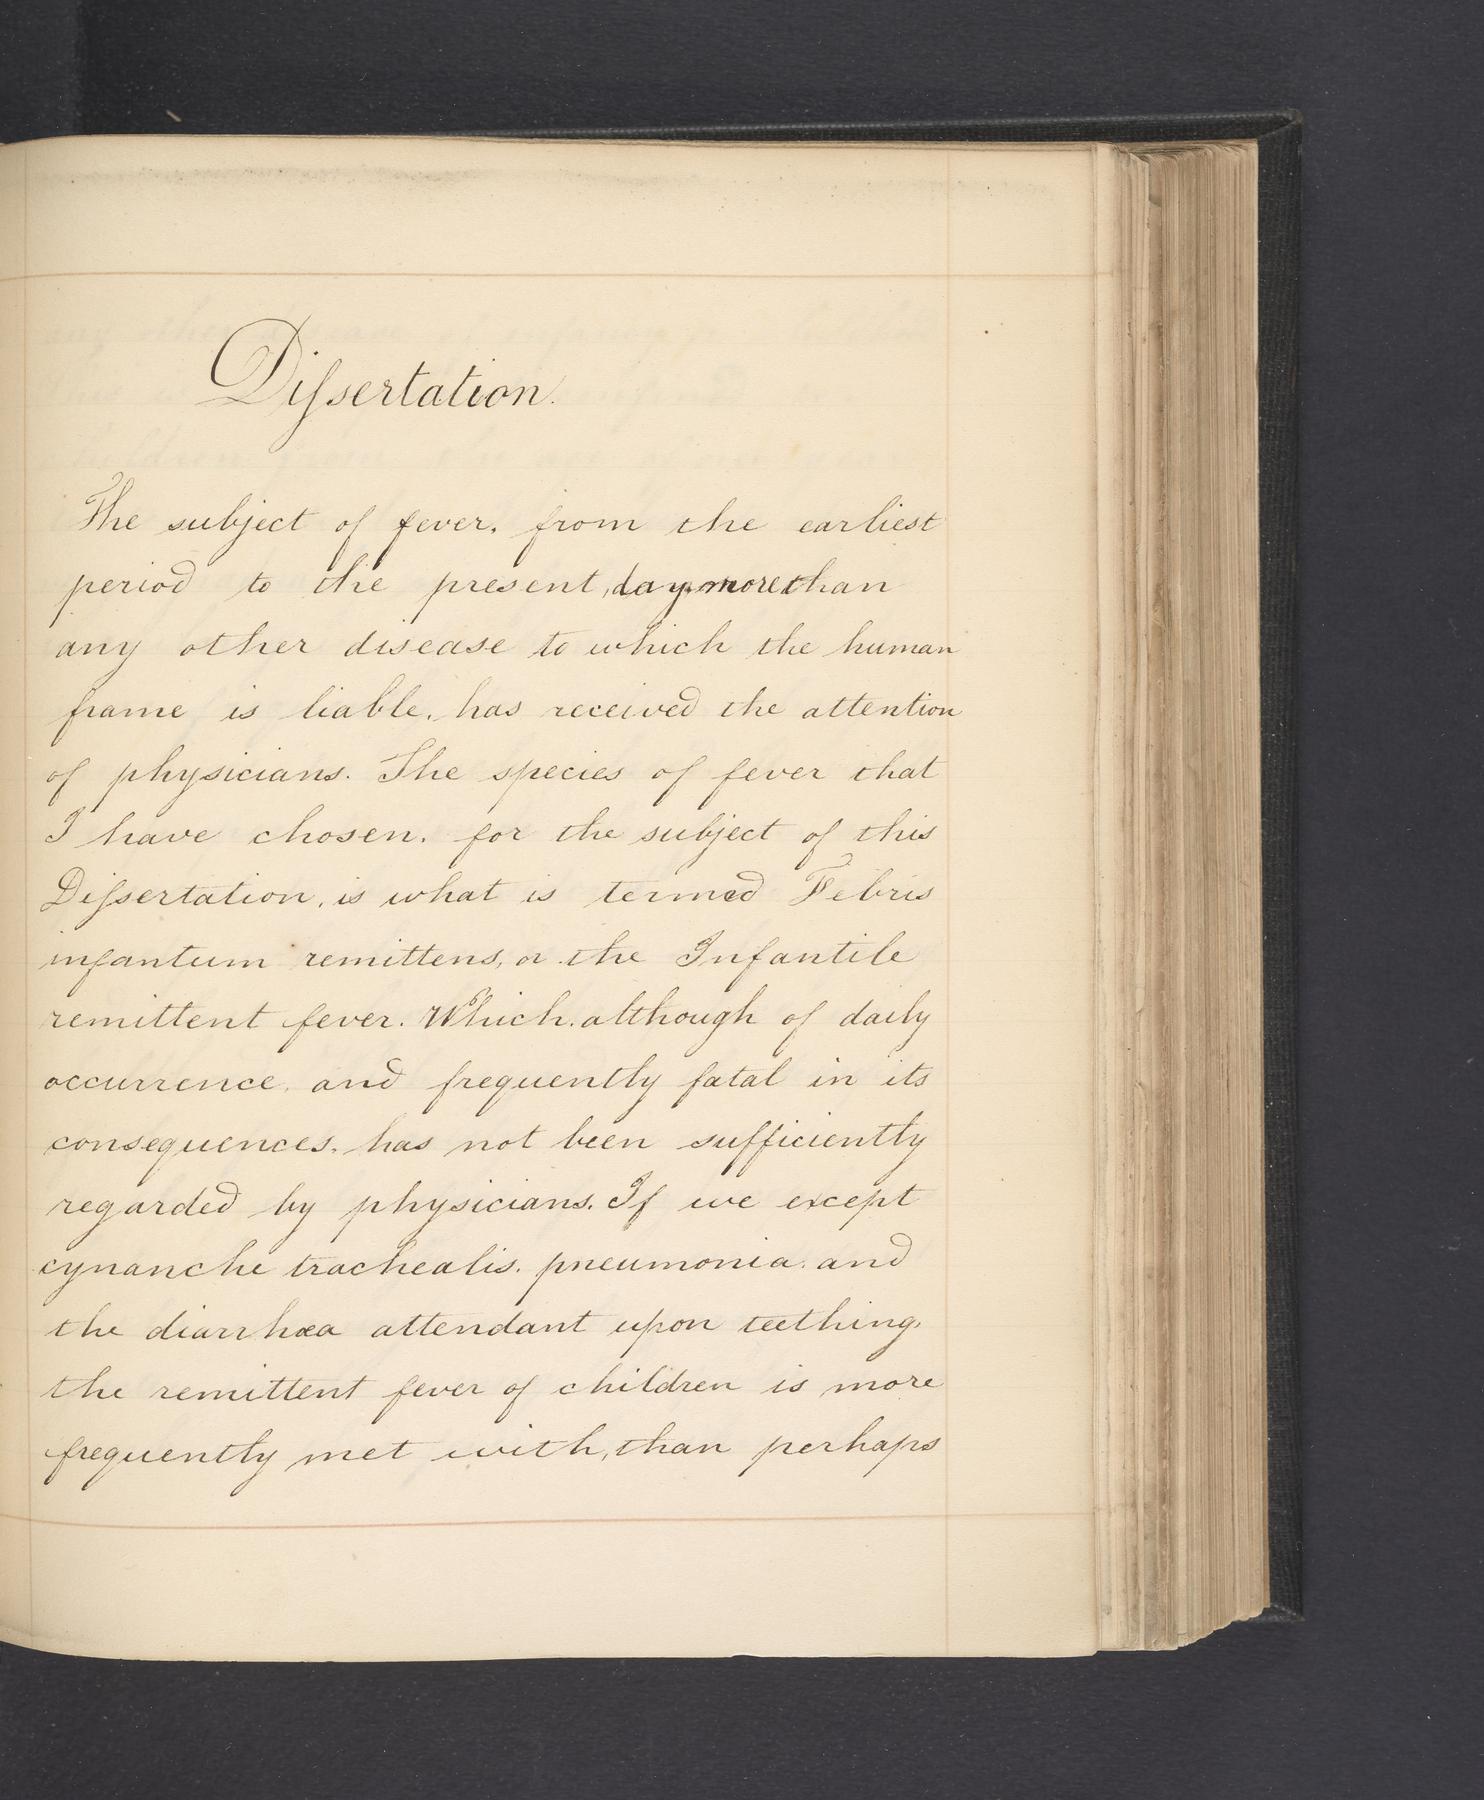 Dissertation.
The subject of fever, from the earliest
period to the present, day, more than
any other disease to which the human
frame is liable, has received the attention
of physicians. The species of fever that
I have chosen, for the subject of this
Dissertation, is what is termed Febris
infantum remittens, or the Infantile
remittent fever. Which, although of daily
occurrence, and frequently fatal in its
consequences, has not been sufficiently
regarded by physicians. If we except
cynanche trachealis, pneumonia, and
the diarrhœa attendant upon teething,
the remittent fever of children is more
frequently met with, than perhaps